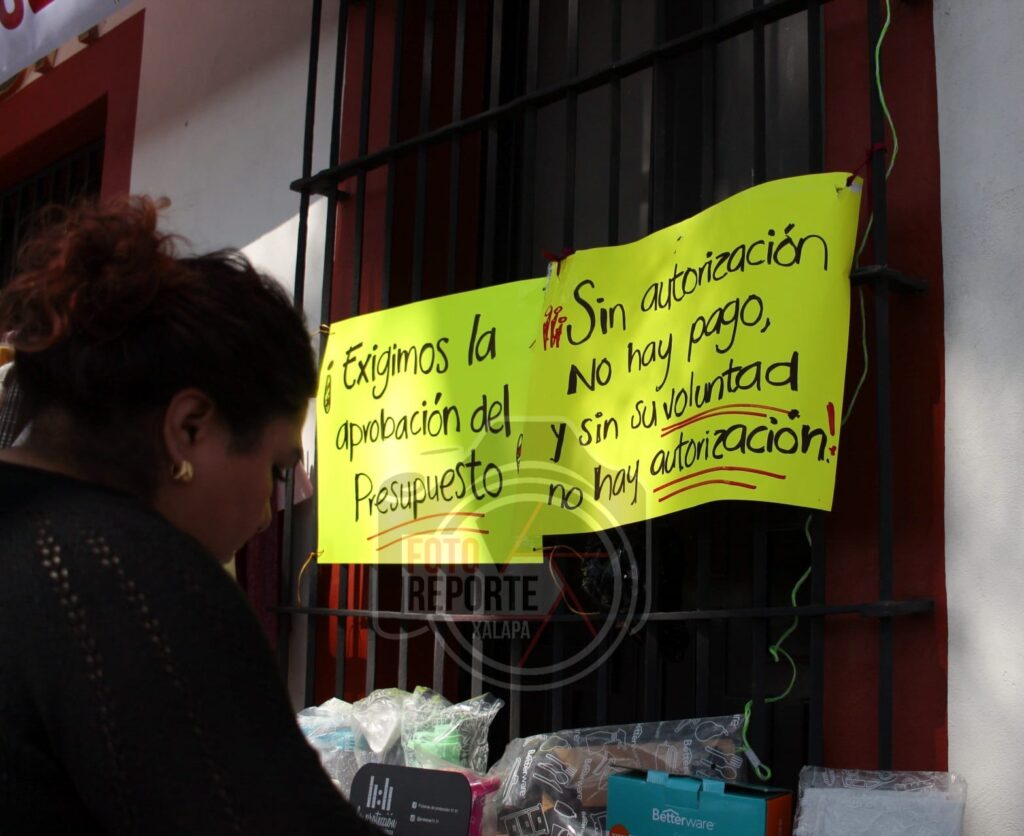 ¡Exigimos la
aprobación del
Presupuesto!
¡¡¡Sin autorización
No hay pago,
y sin su voluntad
no hay autorización!
FOTO
REPORTE
XALAPA
Betterware
Betterware